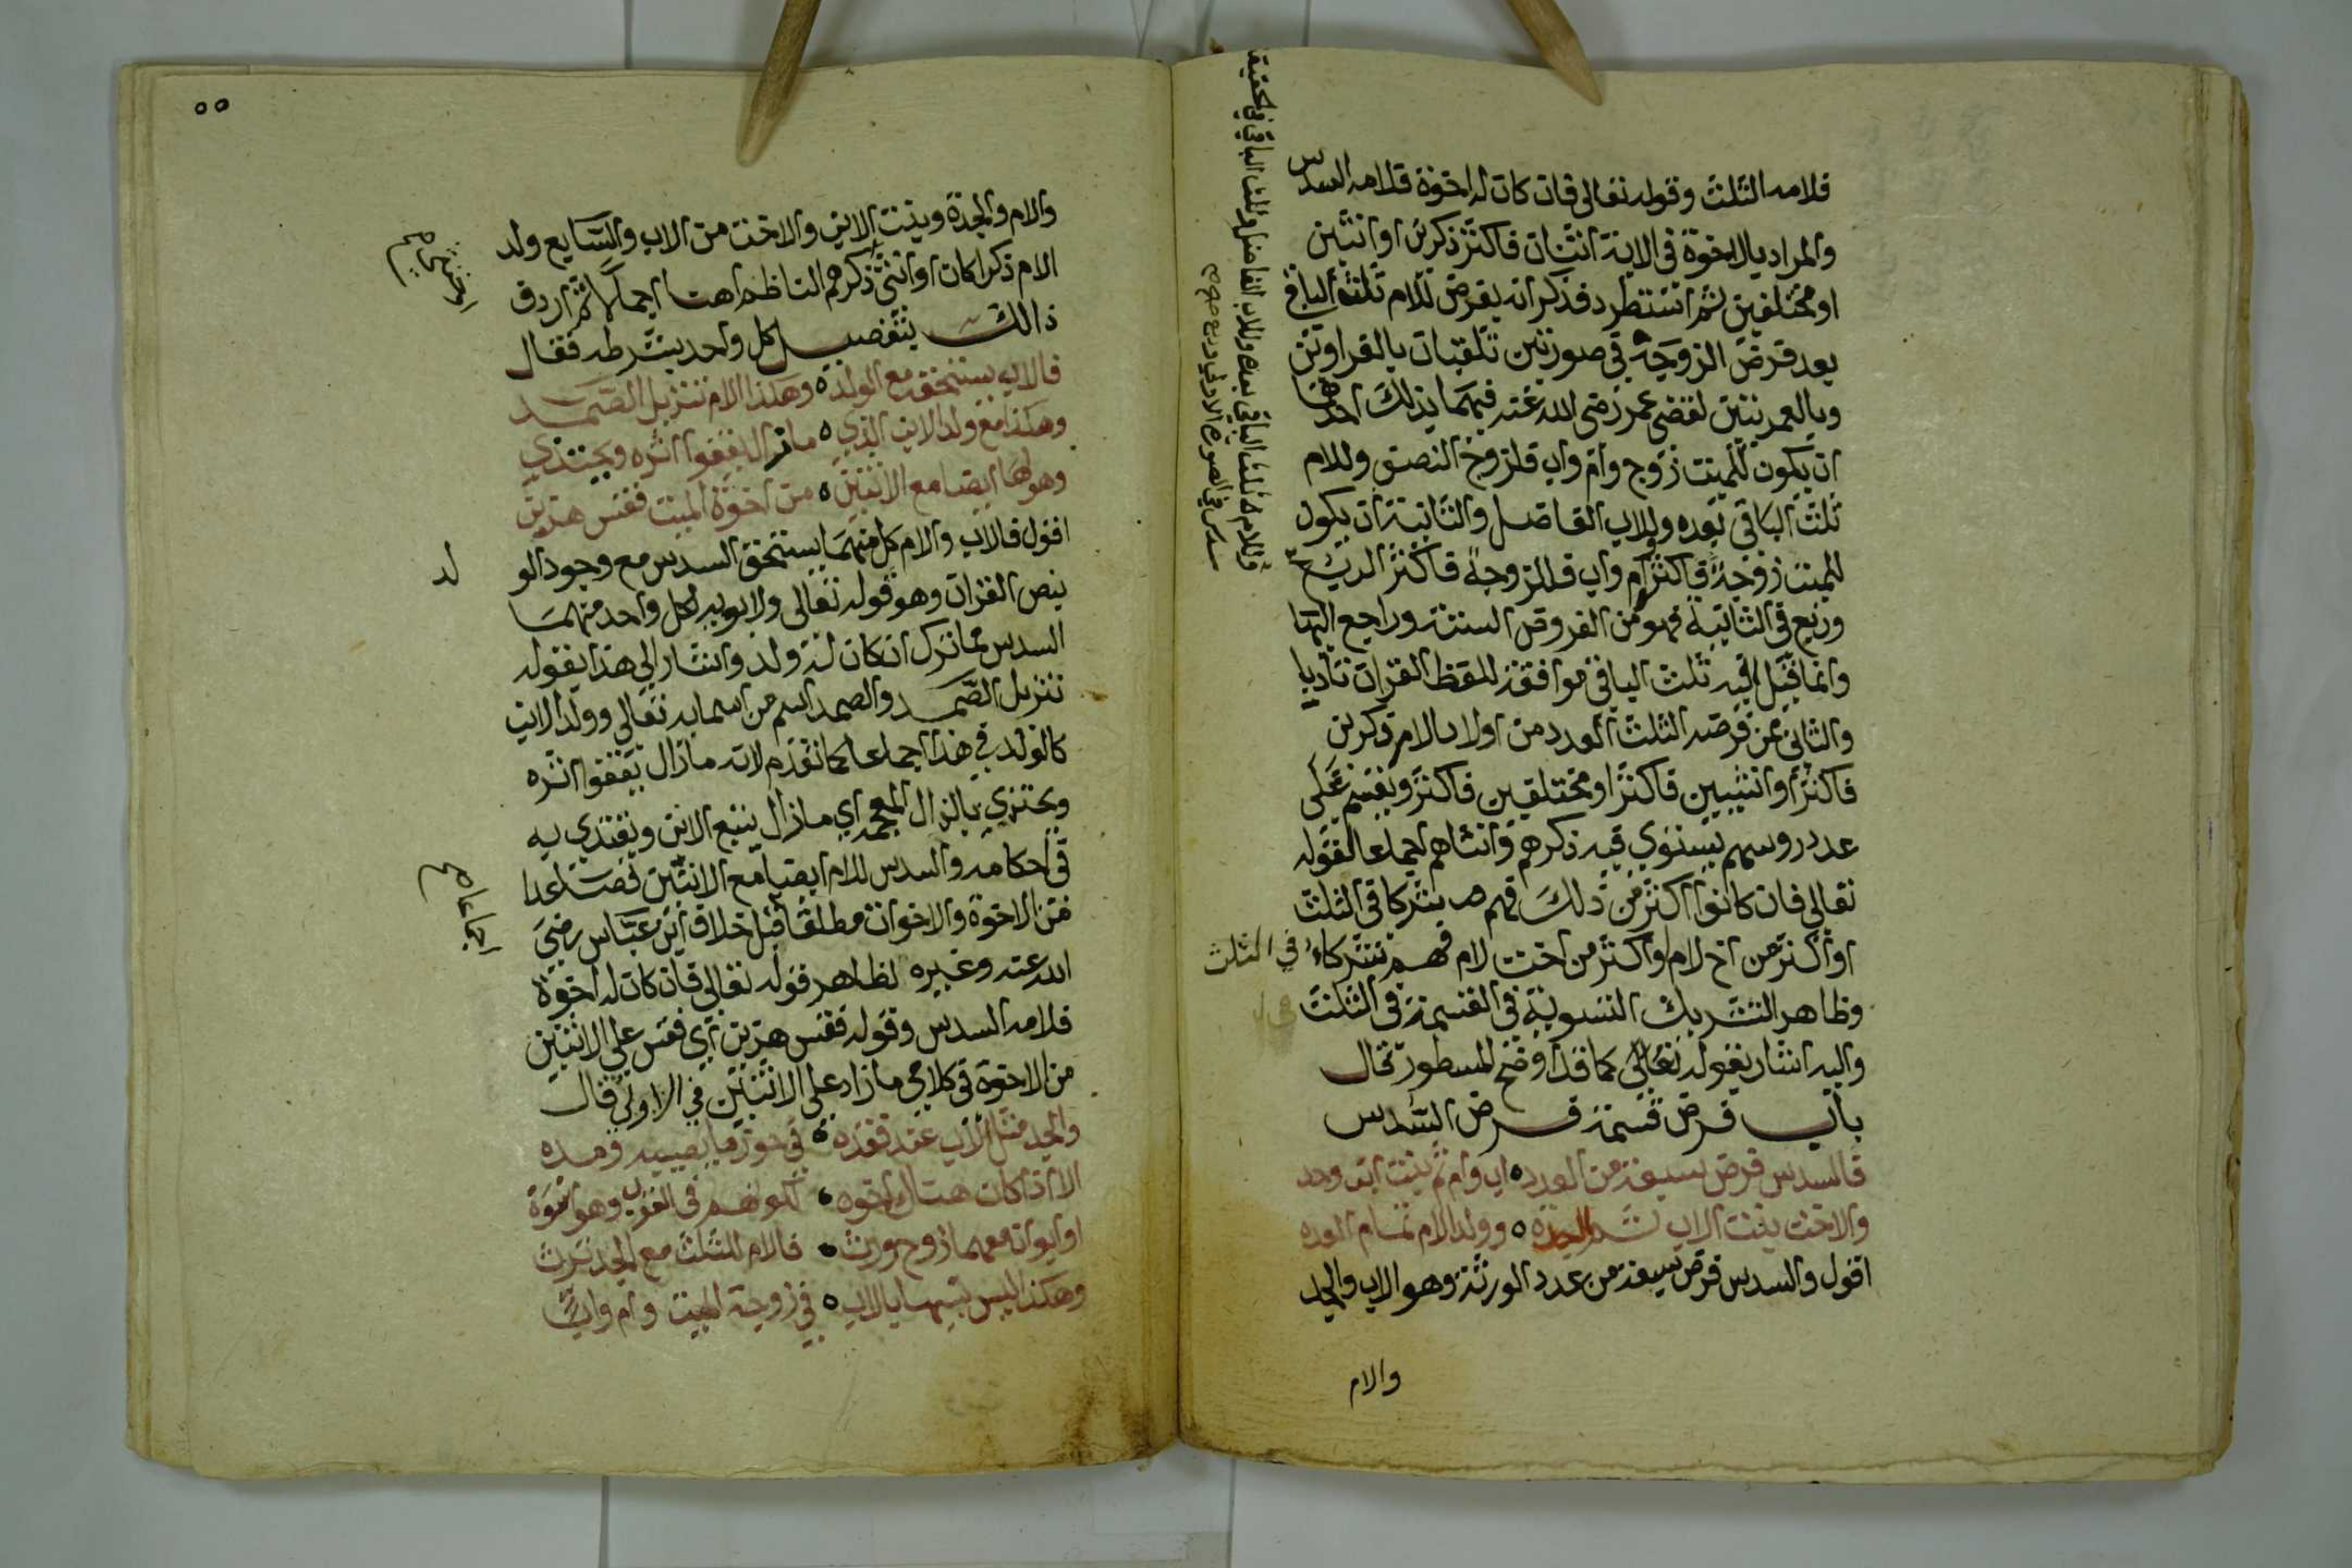 فلامه الثلث وقوله تعالى فان كان له اخوة فلامه السدس
والمراد بالاخوة في الاية اثنان فاكثر ذكرين او انثيين
او مختلفين ثم استطرد فذكر انه يفرض للام ثلث الباقي
بعد فرض الزوجية في صورتين تلقبان بالغراوين
وبالعمريتين لقضى عمر رضي الله عنه فيهما بذلك احدهما
ان يكون للميت زوج وام واب فللزوج النصف وللام
ثلث الباقي بعده وللاب الفاضل والثانية ان يكون
للميت زوجة فاكثر وام واب فللزوجة فاكثر الربع
وربع في الثانية فهو من الفروض الستة وراجع اليها
وانما قيل فيه ثلث الباقي موافقة للفظ القران تادبا
والثاني ممن فرضه الثلث العدد من اولاد الام ذكرين
فاكثر او انثيين فاكثر او مختلفين فاكثر ويقسم على
عدد روسهم يستوي فيه ذكرهم وانثاهم اجماعا لقوله
تعالى فان كانوا اكثر من ذلك فهم شركا في الثلث
او اكثر من اخ لام او اكثر من اخت لام فهم شركاء في الثلث
وظاهر التشريك التسوية في القسمة في الثلث
واليه اشار بقوله تعالى كما قد اوضح المسطور قال
باب فرض قسمة فرض السدس
فالسدس فرض سبعة من العدد اب وام ثم بنت ابن وجد
والاخت بنت الاب ثم الجدة وولد الام تمام العدة
اقول والسدس فرض سبعة من عدد الورثة وهو الاب والجد
والام
وللام ثلث الباقي بعده وللاب الفاضل وثلث الباقي في الحقيقة
سدس في الصورة الاولى وربع صح
٥٥
والام والجدة وبنت الابن والاخت من الاب والسابع ولد
الام ذكرا كان او انثى ذكرهم الناظم هنا اجمالا ثم اردف
ذالك بتفصيل كل واحد بشرطه فقال
فالاب يستحقه مع الولد وهكذا الام تنزيل الصمد
وهكذا مع ولد الابن الذي مازال يقفوا اثره ويحتذي
وهو لها ايضا مع الاثنين من اخوة الميت فقس هذين
اقول فالاب والام كل منهما يستحق السدس مع وجود الو
لد
بنص القران وهو قوله تعالى ولابويه لكل واحد منهما
السدس مما ترك ان كان له ولد واشار الى هذا بقوله
تنزيل الصمد والصمد اسم من اسمايه تعالى وولد الابن
كالولد في هذا اجماعا كما تقدم لانه مازال يقفوا اثره
ويحتذي بالذال المعجمة اي مازال يتبع الابن ويقتدي به
في احكامه والسدس للام ايضا مع الاثنين فصاعدا
من الاخوة والاخوات مطلقا قبل خلاف ابن عباس رضي
الله عنه وغيره لظاهر قوله تعالى فان كان له اخوة
فلامه السدس وقوله فقس هذين اي فقس على الاثنين
من الاخوة في كلامي مازاد على الاثنين في الاولى قال
والجد مثل الاب عند فقده في حوز ما يصيبه ومده
الا اذا كان هناك اخوه لكونهم في القرب وهو اسوة
او ابوان معهما زوج ورث فالام للثلث مع الجد ترث
وهكذا ليس شبيها بالاب في زوجة الميت وام واب
اجماعا صح